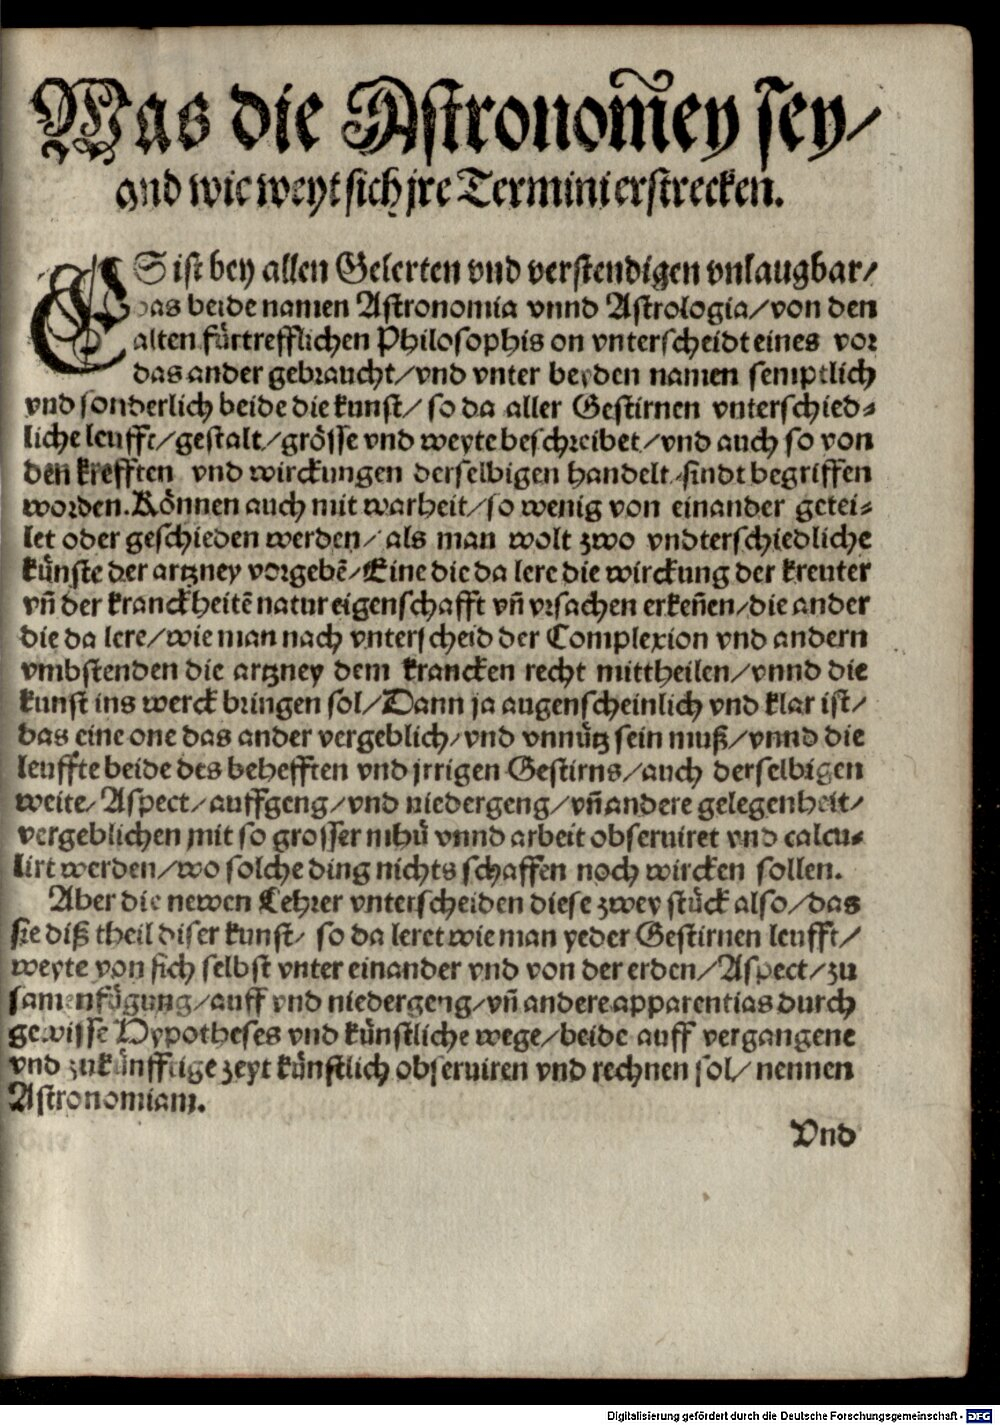 Was die Astronom̃ey sey/
vnd wie weyt sich jre Termini erstrecken.
ES ist bey allen Gelerten vnd verstendigen vnlaugbar/
das beide namen Astronomia vnnd Astrologia/von den
alten fürtrefflichen Philosophis on vnterscheidt eines vor
das ander gebraucht/vnd vnter beyden namen semptlich
vnd sonderlich beide die kunst/ so da aller Gestirnen vnterschied⸗
liche leufft/gestalt/grösse vnd weyte beschreibet/vnd auch so von
den krefften vnd wirckungen derselbigen handelt/sindt begriffen
worden. Können auch mit warheit/so wenig von einander getei⸗
let oder geschieden werden/als man wolt zwo vndterschiedliche
künste der artzney vorgebē/Eine die da lere die wirckung der kreuter
vñ der kranckheitē natur eigenschafft vñ vrsachen erkeñen/die ander
die da lere/wie man nach vnterscheid der Complexion vnd andern
vmbstenden die artzney dem krancken recht mittheilen/vnnd die
kunst ins werck bringen sol/Dann ja augenscheinlich vnd klar ist/
das eine one das ander vergeblich/vnd vnnütz sein muß/vnnd die
leuffte beide des behefften vnd jrrigen Gestirns/auch derselbigen
weite/Aspect/auffgeng/vnd niedergeng/vñ andere gelegenheit/
vergeblichen mit so grosser mhü vnnd arbeit obseruiret vnd calcu⸗
lirt werden/wo solche ding nichts schaffen noch wircken sollen.
Aber die newen Lehrer vnterscheiden diese zwey stück also/das
sie diß theil diser kunst/ so da leret wie man yeder Gestirnen leufft/
weyte von sich selbst vnter einander vnd von der erden/Aspect/zu
samenfügung/auff vnd niedergeng/vñ andere apparentias durch
gewisse Hypotheses vnd künstliche wege/beide auff vergangene
vnd zukünfftige zeyt künstlich obseruiren vnd rechnen sol/nennen
Astronomiam.
Vnd
Digitalisierung gefördert durch die Deutsche Forschungsgemeinschaft - DFG